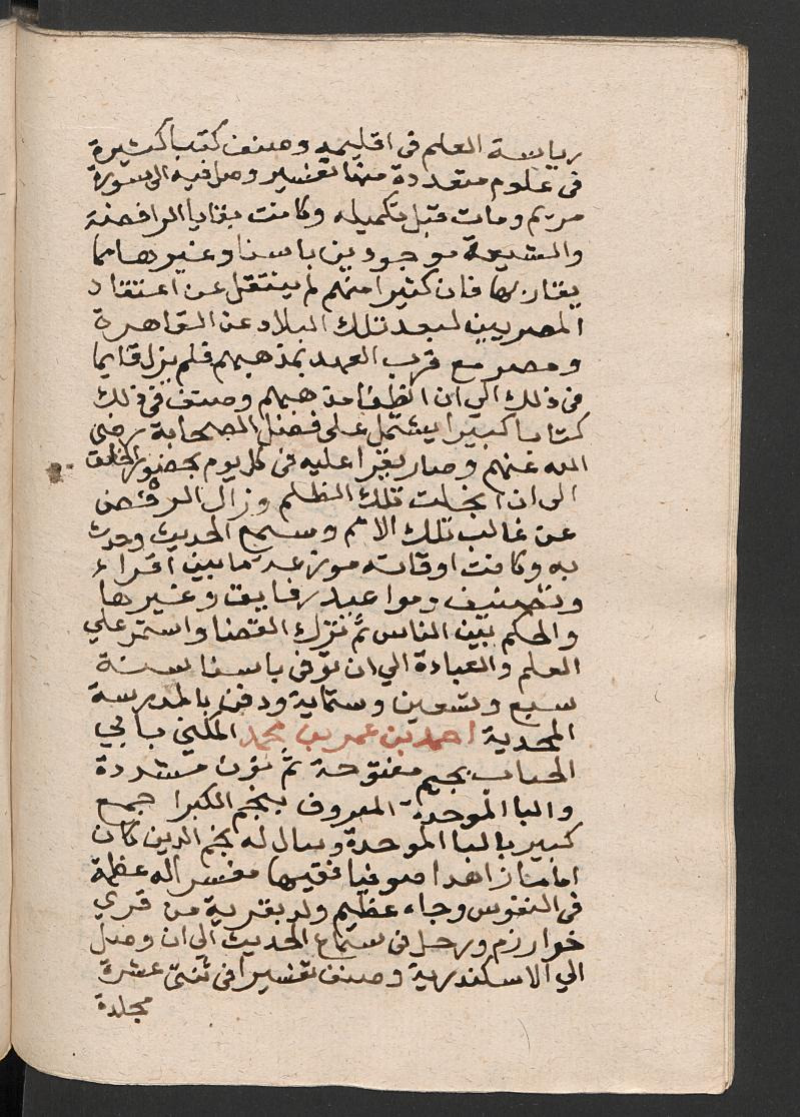 رياسة العلم فى اقليمه وصنف كتبا كثيرة
فى علوم متعددة منها تفسير وصل فيه الى سورة
مريم ومات قبل تكميله وكانت بقايا الرافضة
والشيعة موجودين باسنا وغيرها مما
يقاربها فان كثيرا منهم لم ينتقل عن اعتقاد
المصريين لبعد تلك البلاد عن القاهرة
ومصر مع قرب العهد بمذهبهم فلم يزل قايما
فى ذلك الى ان انطفا مذهبهم وصنف فى ذلك
كتابا كبيرا يشتمل على فضل الصحابة رضى
الله عنهم وصار يقرا عليه فى كل يوم بحضور الخلق
الى ان انجلت تلك الظلم وزال الرفض
عن غالب تلك الامم وسمع الحديث وحدث
به وكانت اوقاته موزعة ما بين اقراء
وتصنيف ومواعيد رقايق وغيرها
والحكم بين الناس ثم نزل القضا واستمر على
العلم والعبادة الى ان توفى باسنا سنة
سبع وتسعين وستماية ودفن بالمدرسة
المجدية احمد بن عمر بن محمد المكنى بابي
الجناب بجيم مفتوحة ثم نون مشددة
والبا الموحدة المعروف بنجم الكبرا جمع
كبير بالبا الموحدة ويقال له نجم الدين كان
اماما زاهدا صوفيا فقيها مفسرا له عظمة
فى النفوس وجاء عظيم ولد بقرية من قرى
خوارزم ورحل فى سماع الحديث الى ان وصل
الى الاسكندرية وصنف تفسيرا فى ثنتى عشرة
مجلدة